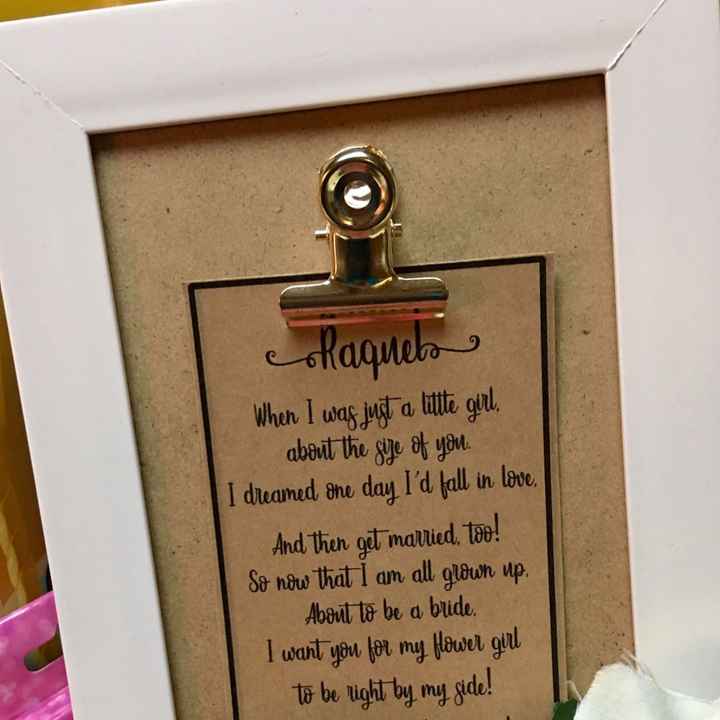 Raquel
When I was just a little girl,
about the size of you.
I dreamed one day I'd fall in love,
And then get married, too!
So now that I am all grown up,
About to be a bride,
I want you for my flower girl
to be right by my side!